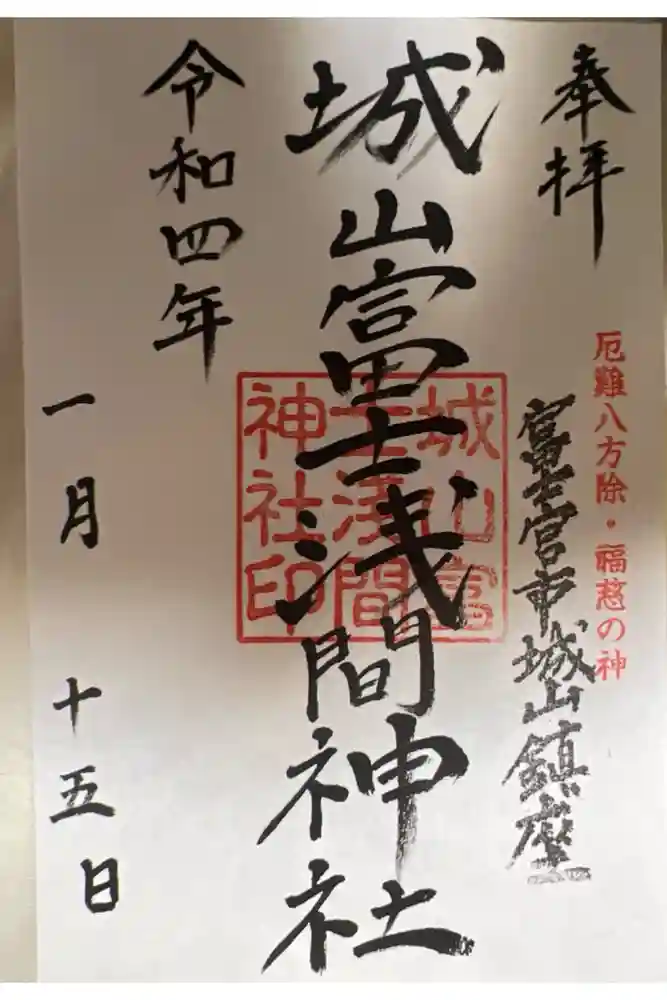 奉拝
厄難八方除・福慈の神
富士宮市城山鎮座
城山富士浅間神社
城山富
士浅間
神社印
令和四年
一月
十五日